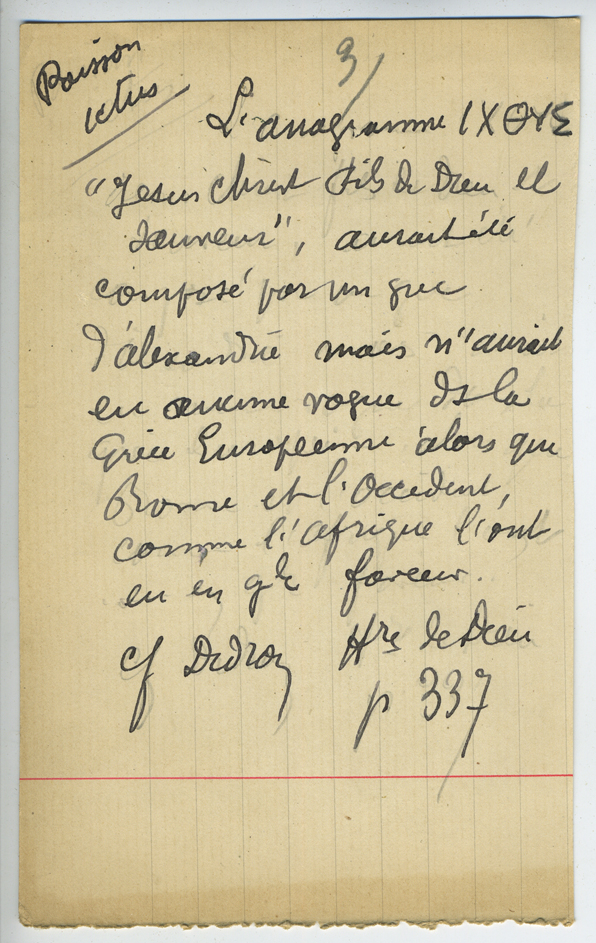 Poisson
ictus
3
L'anagramme ΙΧΘΥΣ
"Jesus Christ Fils de Dieu et
Sauveur", aurait été
composé par un grec
d'alexandrie mais n'aurait
eu aucune vogue ds la
Grèce Européenne alors que
Rome et l'Occident,
comme l'afrique l'ont
eu en gde faveur.
cf Didron Hre de Dieu
p 337